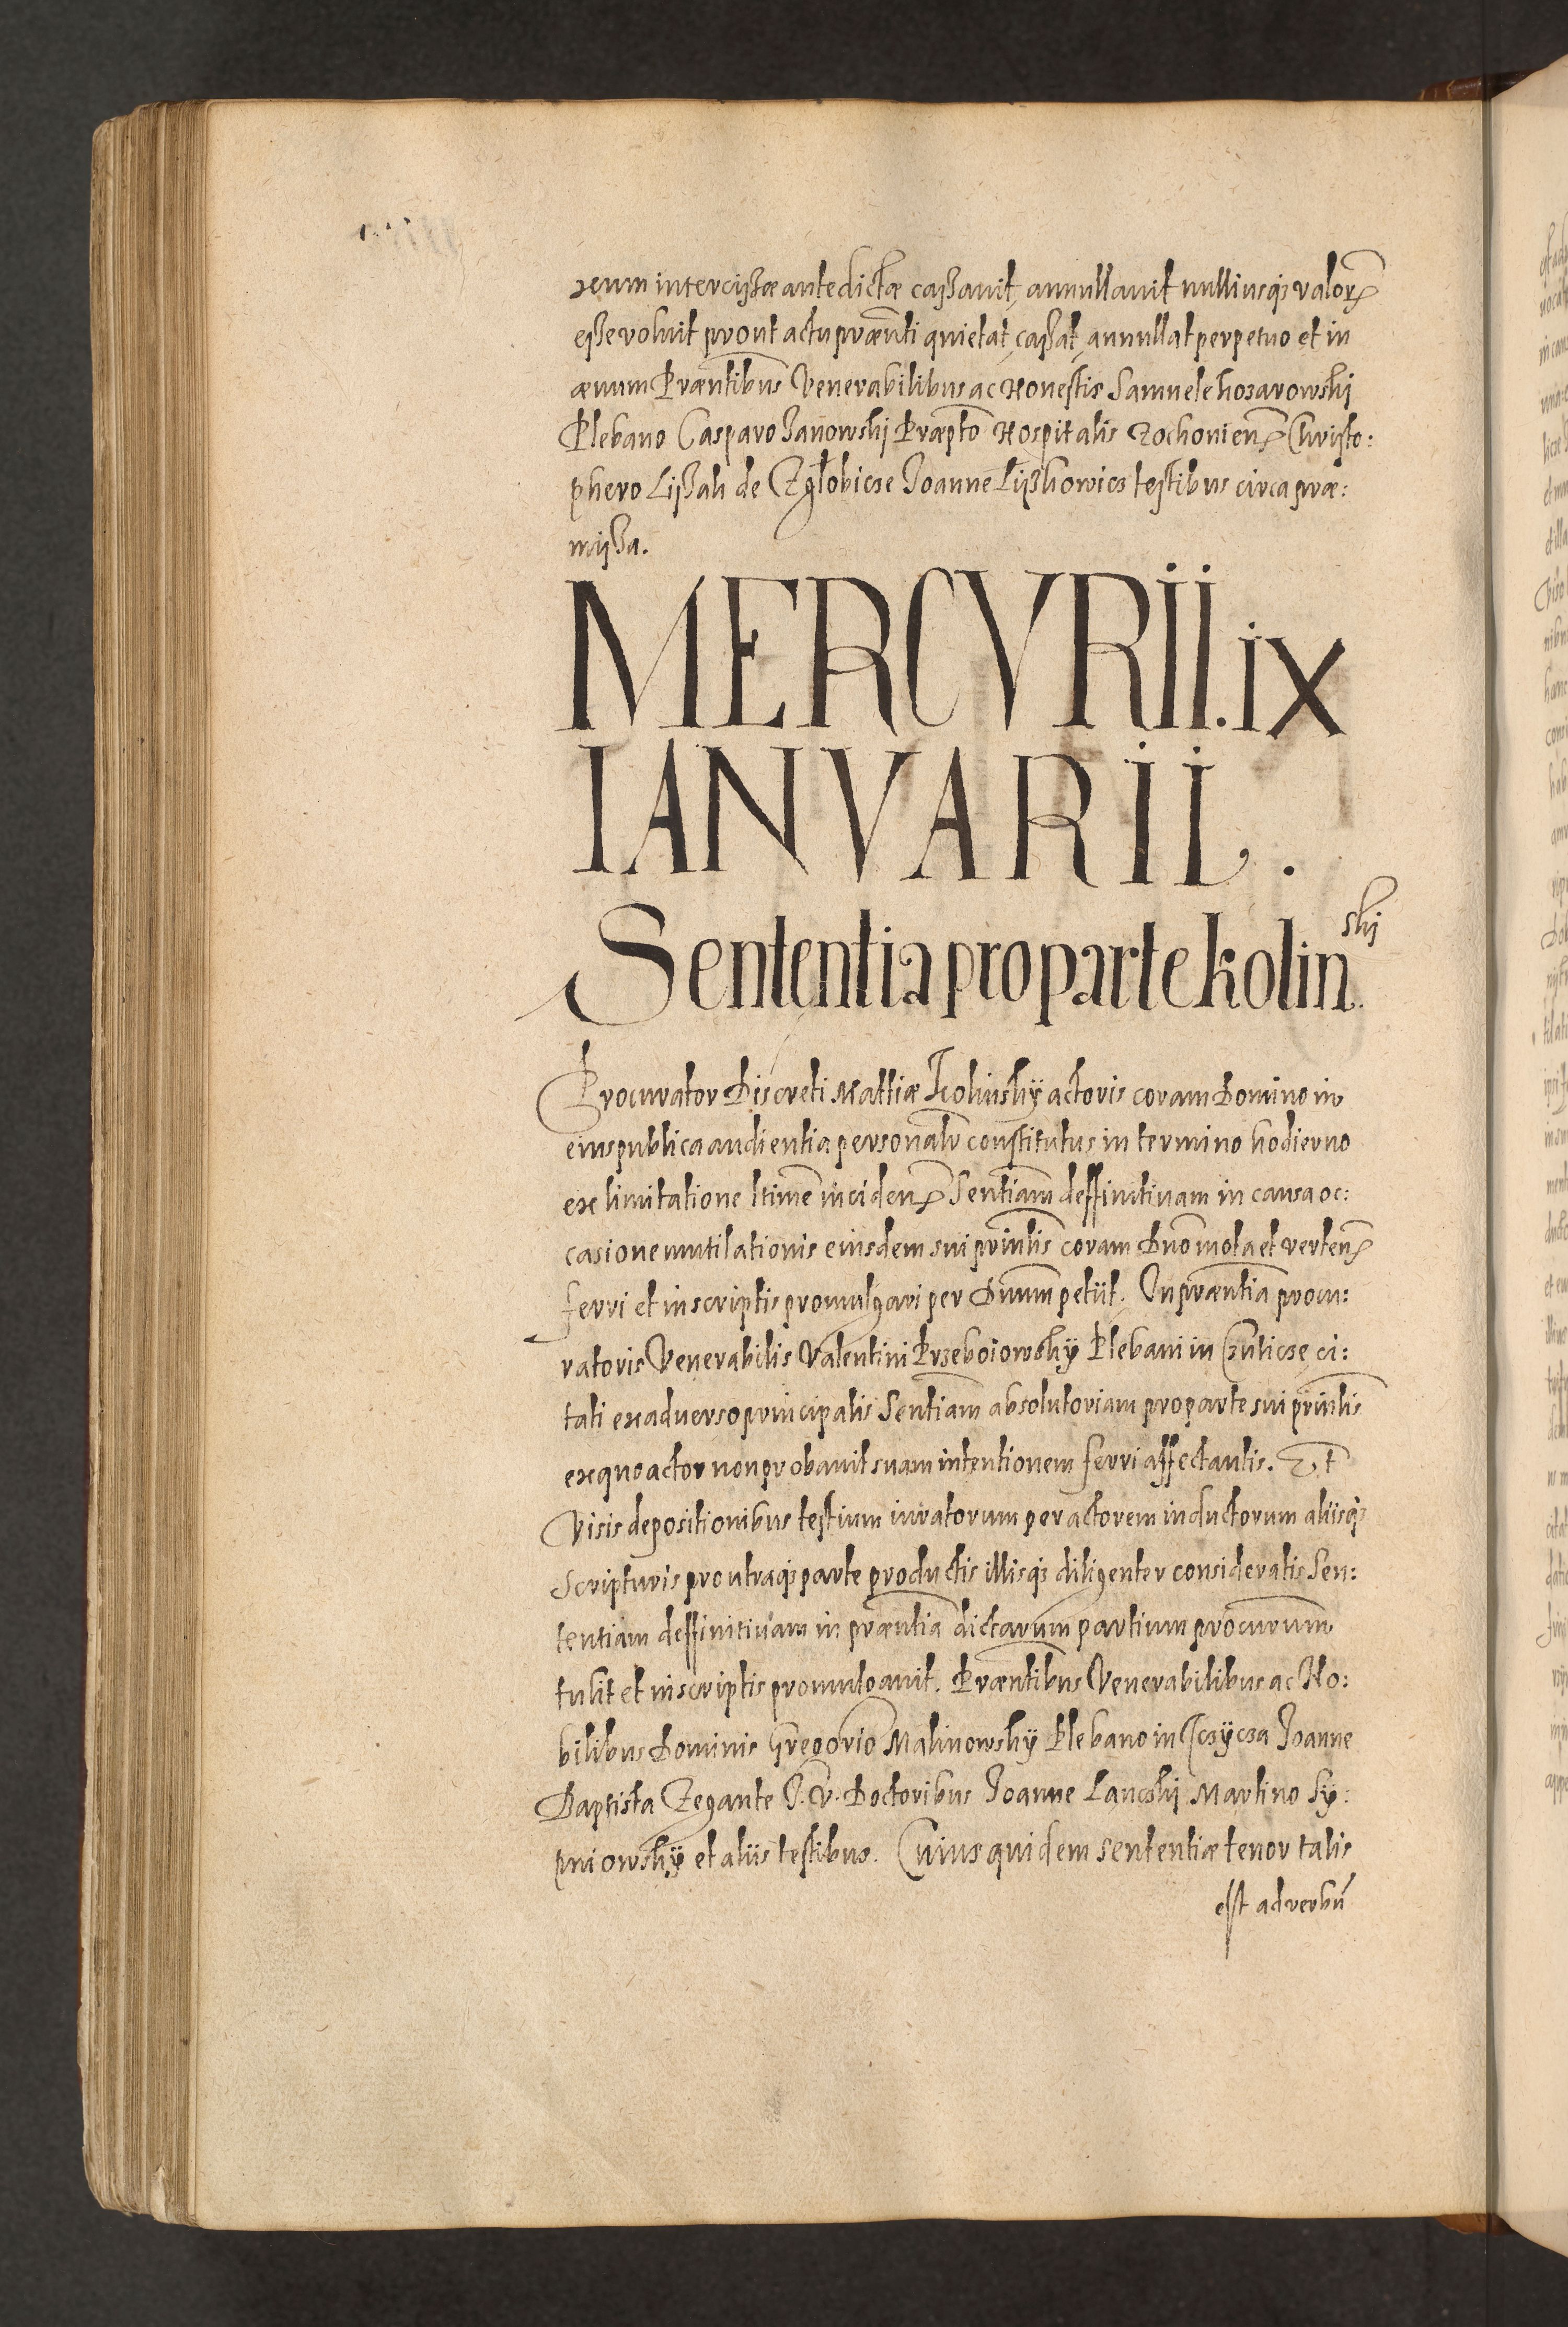 rerum intercißæ antedictæ caßauit, annullauit nulliusq3 valor
eße voluit prout actu præñti quietat, caßat, annullat perpetuo et in
æuum Præntibus Venerabilibus ac Honestis Samuele kozarowski
Plebano Casparo Janowski Præpto Hospitalis Rochonien Christo:
phero Lißak de Zglobicze Joanne Lißkowicz testibus circa præ:
mißa.
MERCVRII. ix
IANVARII.
Sententia pro parte kolin ski
Procurator Discreti Mattiæ Kolinsky actoris coram Domino in
eius publica audientia personalr constitutus in termino hodierno
ex limitatione ltime inciden Sentiam deffinitiuam in causa oc:
casione mutilationis eiusdem sui prinlis coram Dno mota et verten
ferri et in scriptis promulgari per Dnum petiit. In præntia procu:
ratoris Venerabilis Valentini Przeboiowsky Plebani in ci:
tati ex aduerso principalis Sentiam absolutoriam pro parte sui prinlis
ex quo actor non probauit suam intentionem ferri affectantis. Et
Visis depositionibus testium iuratorum per actorem inductorum aliisq3
Scripturis pro utraq3 parte productis illisq3 diligenter consideratis Sen:
tentiam deffinitiuam in præntia dictarum partium procurum
tulit et in scriptis promulgauit. Præntibus Venerabilibus ac No:
bilibus Dominis Gregorio Malinowsky Plebano in Joanne
Baptista Zegante I. V. Doctoribus Joanne Lanczki Martino Sy:
pniowsky et aliis testibus. Cuius quidem sententiæ tenor talis
est ad verbũ